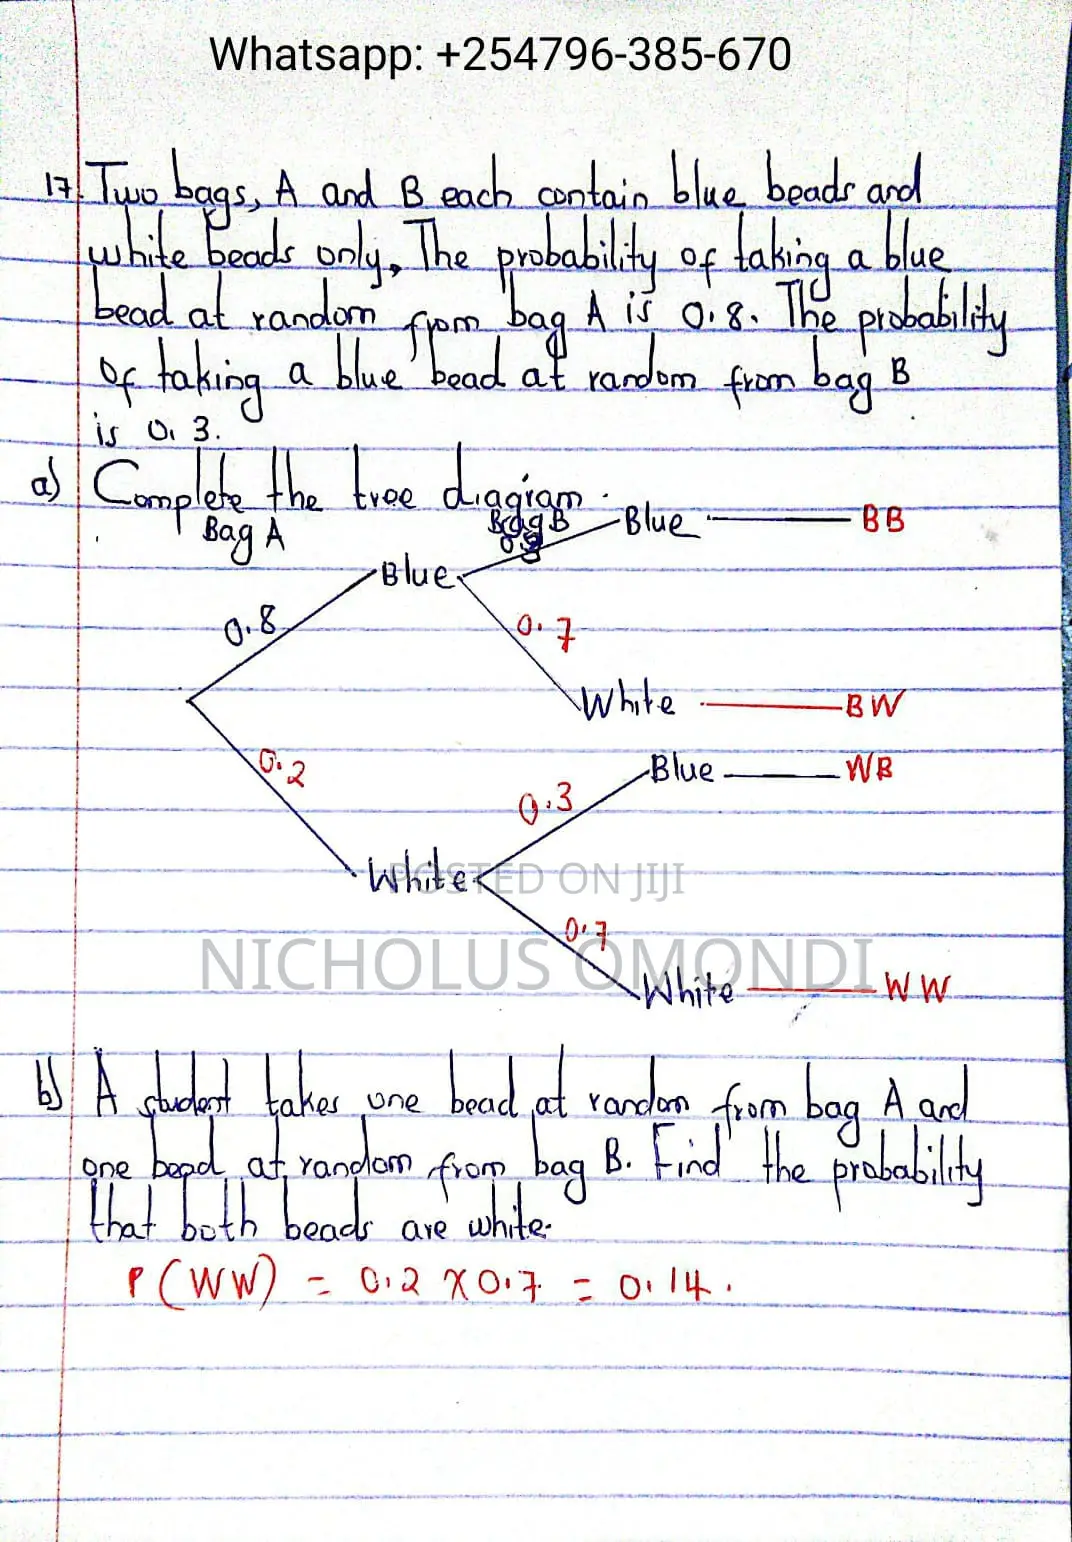 Whatsapp: +254796-385-670
17. Two bags, A and B each contain blue beads and
white beads only, The probability of taking a blue
bead at random from bag A is 0.8. The probability
of taking a blue bead at random from bag B
is 0.3.
a) Complete the tree diagram.
Bag A Bag B
Blue BB
0.3
Blue
0.8 0.7
White BW
0.2 Blue WB
0.3
White
POSTED ON JIJI
0.7
NICHOLUS OMONDI
White WW
b) A student takes one bead at random from bag A and
one bead at random from bag B. Find the probability
that both beads are white.
P(WW) = 0.2 X 0.7 = 0.14.